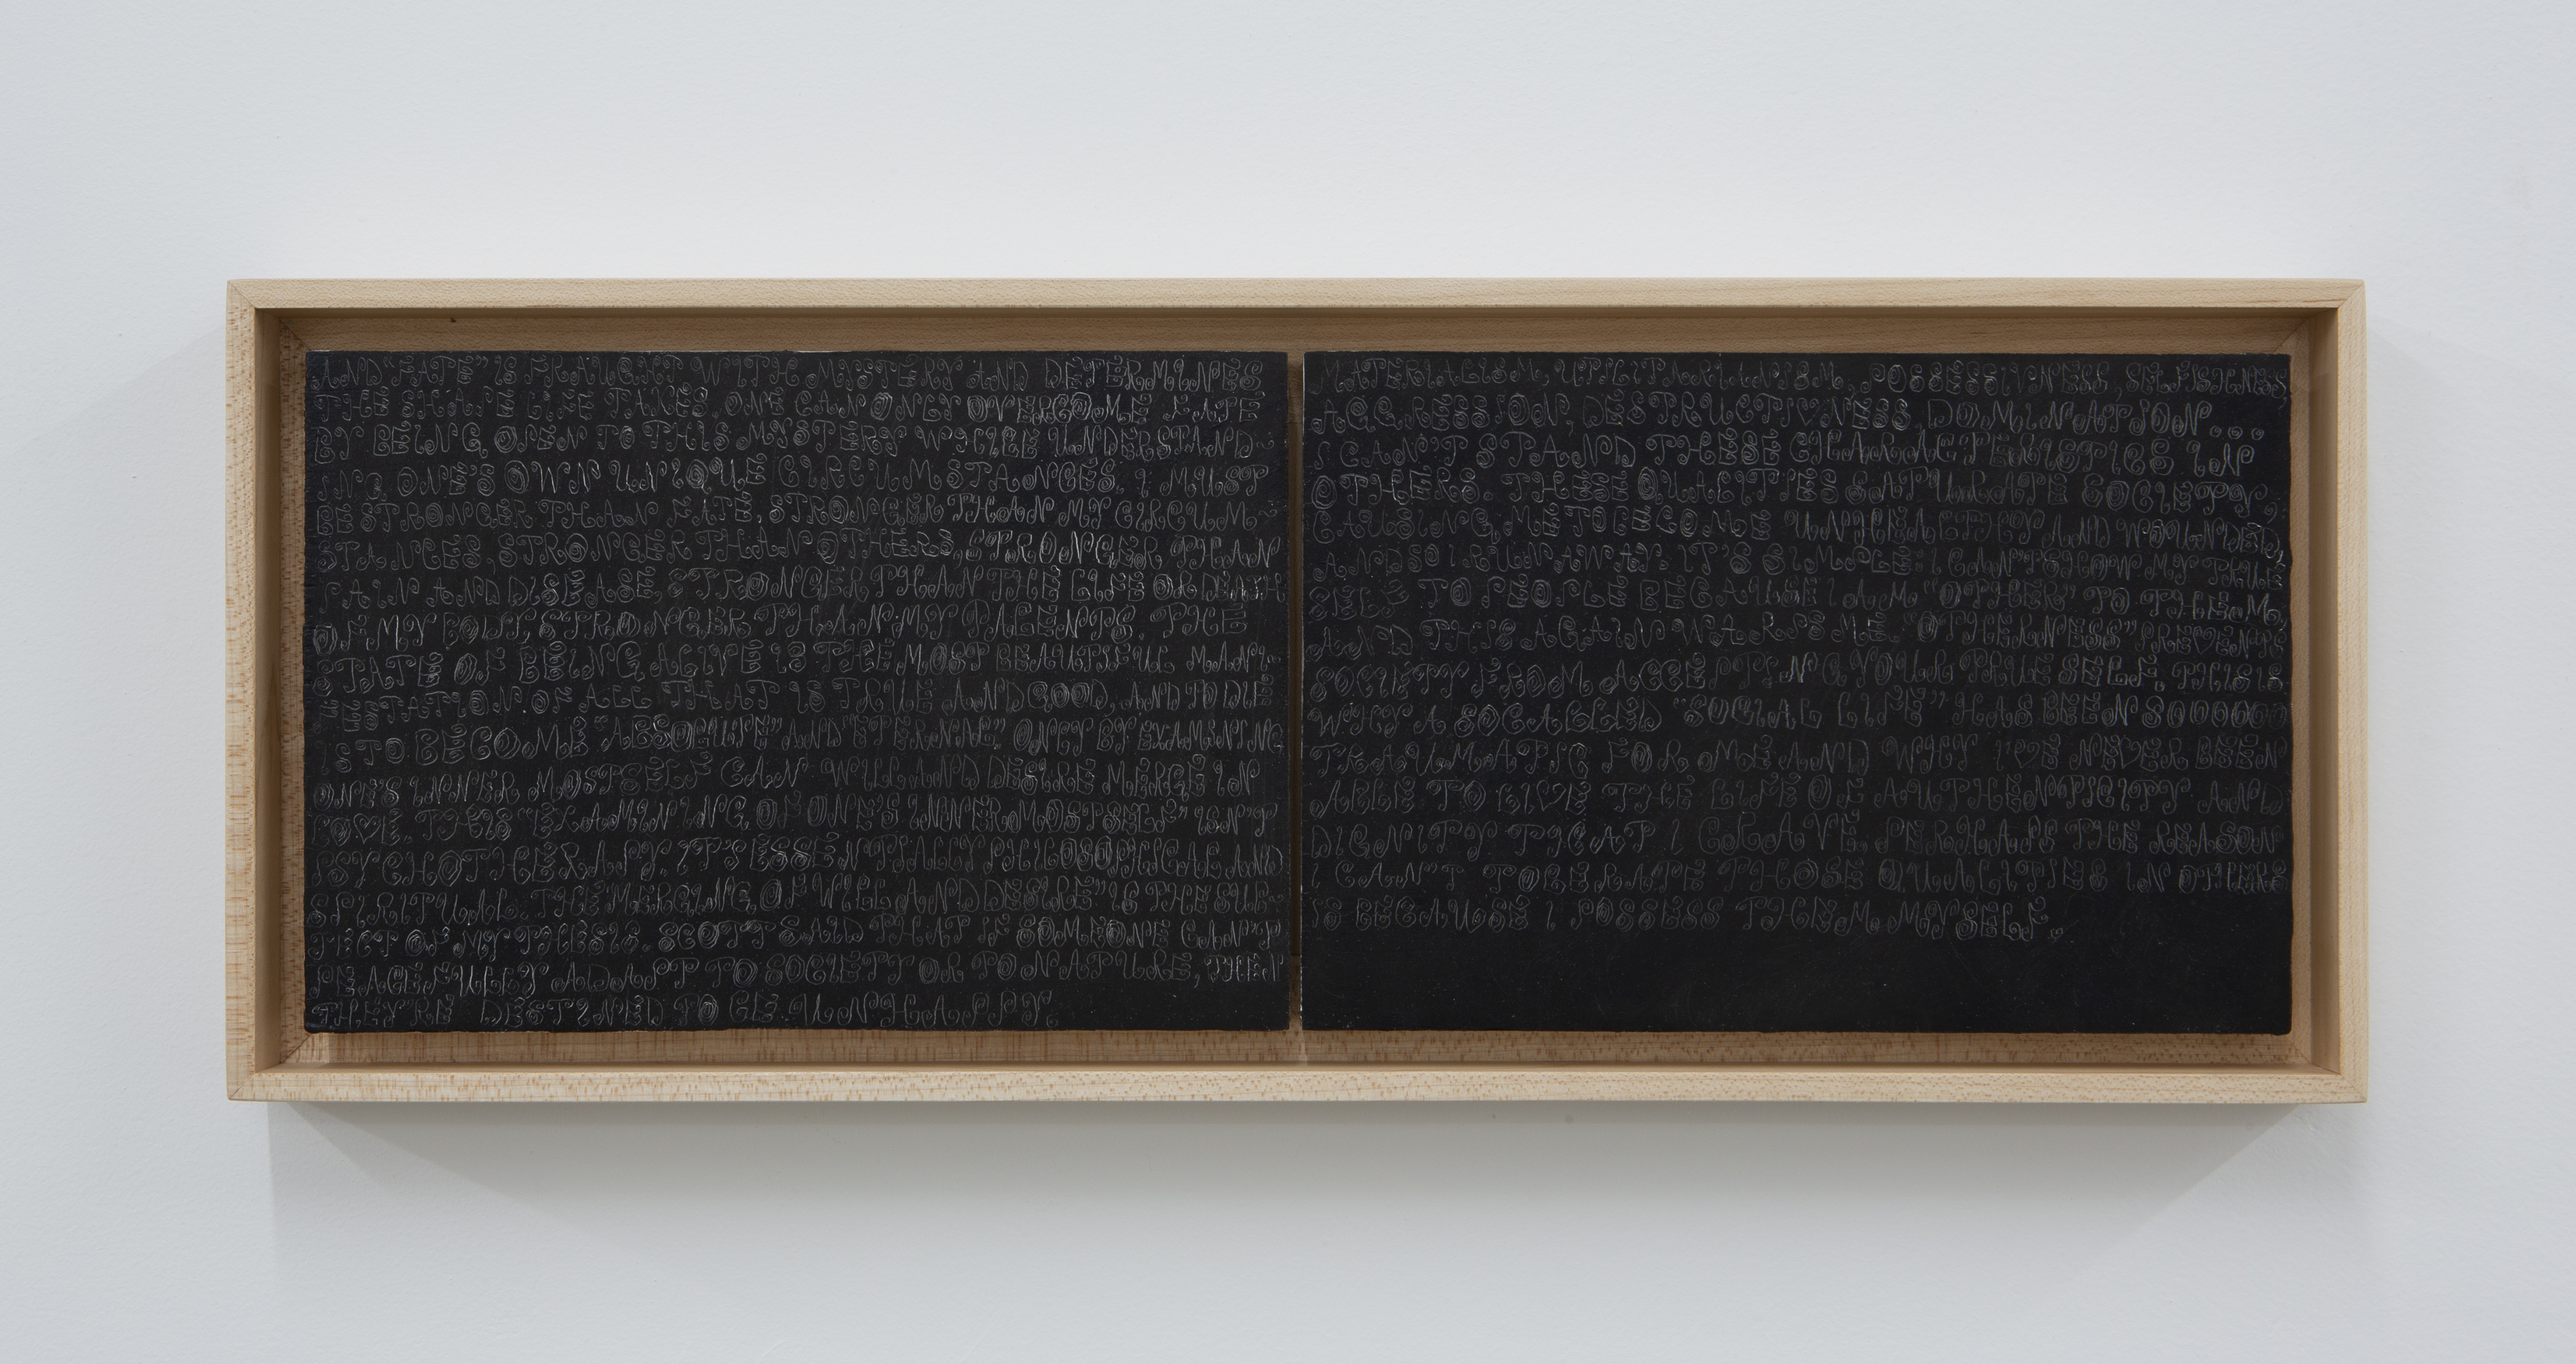 AND "FATE" IS FRAUGHT WITH MYSTERY AND DETERMINES
THE SHAPE LIFE TAKES. ONE CAN ONLY OVERCOME FATE
BY BEING OPEN TO THIS MYSTERY WHILE UNDERSTAND-
ING ONE'S OWN UNIQUE CIRCUMSTANCES. I MUST
BE STRONGER THAN FATE, STRONGER THAN MY CIRCUM-
STANCES, STRONGER THAN OTHERS, STRONGER THAN
PAIN AND DISEASE, STRONGER THAN THE LIFE OR DEATH
OF MY BODY, STRONGER THAN MY PARENTS. THE
STATE OF BEING ALIVE IS THE MOST BEAUTIFUL MANI-
FESTATION OF ALL THAT IS TRUE AND GOOD, AND TO DIE
IS TO BECOME "ABSOLUTE" AND "ETERNAL". ONLY BY EXAMINING
ONE'S INNERMOST SELF CAN WILL AND DESIRE MERGE IN
LOVE. THIS "EXAMINING OF ONE'S INNERMOST SELF" ISN'T
PSYCHOTHERAPY. IT'S ESSENTIALLY PHILOSOPHICAL AND
SPIRITUAL. "THE MERGING OF WILL AND DESIRE" IS THE SUB-
JECT OF MY THESIS. SCOTT SAID THAT IF SOMEONE CAN'T
PEACEFULLY ADAPT TO SOCIETY OR TO NATURE, THEN
THEY'RE DESTINED TO BE UNHAPPY.
MATERIALISM, UTILITARIANISM, POSSESSIVENESS, SELFISHNESS,
AGGRESSION, DESTRUCTIVENESS, DOMINATION...
I CAN'T STAND THESE CHARACTERISTICS IN
OTHERS. THESE QUALITIES SATURATE SOCIETY,
CAUSING ME TO BECOME UNHEALTHY AND WOUNDED,
AND SO I RUN AWAY. IT'S SIMPLE: I CAN'T SHOW MY TRUE
SELF TO PEOPLE BECAUSE I AM "OTHER" TO THEM,
AND THIS AGAIN WARPS ME. "OTHERNESS" PREVENTS
SOCIETY FROM ACCEPTING YOUR TRUE SELF. THIS IS
WHY A SO CALLED "SOCIAL LIFE" HAS BEEN SOOOOO
TRAUMATIC FOR ME AND WHY I'VE NEVER BEEN
ABLE TO LIVE THE LIFE OF AUTHENTICITY AND
DIGNITY THAT I CRAVE. PERHAPS THE REASON
I CAN'T TOLERATE THOSE QUALITIES IN OTHERS
IS BECAUSE I POSSESS THEM MYSELF.